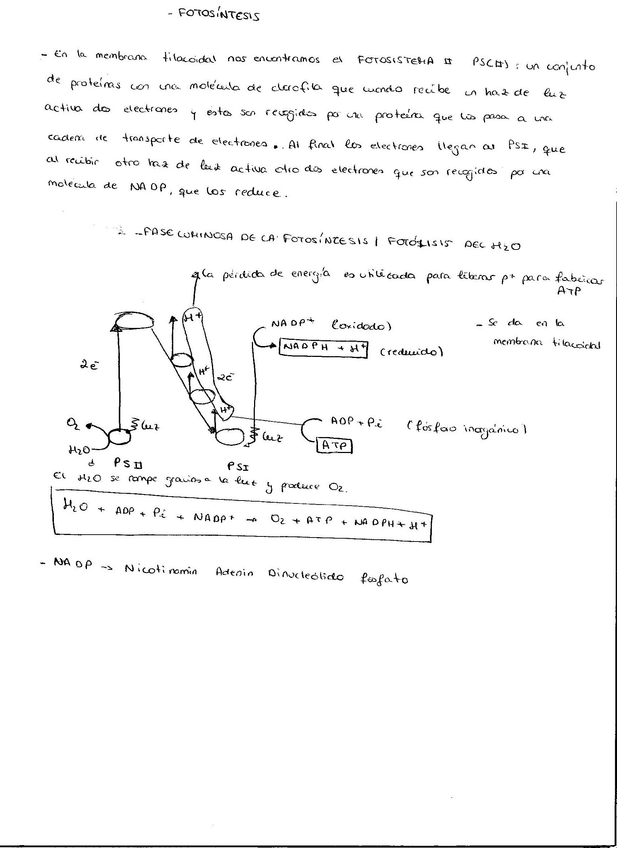 - FOTOSÍNTESIS
- En la membrana tilacoidal nos encontramos el FOTOSISTEMA II PS(II) : un conjunto
de proteínas con una molécula de clorofila que cuando recibe un haz de luz
activa dos electrones y estos son recogidos por una proteína que los pasa a una
cadena de transporte de electrones. Al final los electrones llegan al PSI, que
al recibir otro haz de luz activa otro dos electrones que son recogidos por una
molécula de NADP, que los reduce.
- FASE LUMINOSA DE LA FOTOSÍNTESIS / FOTÓLISIS DEL H2O
La pérdida de energía es utilizada para liberar p+ para fabricar
ATP
H+
NADP+ (oxidado)
- Se da en la
membrana tilacoidal
NADPH + H+ (reducido)
2e-
H+
2e-
H+
O2
luz
luz
ADP + Pi (fósfao inorgánico)
ATP
H2O
PSII
PSI
El H2O se rompe gracias a la luz y produce O2.
H2O + ADP + Pi + NADP+ → O2 + ATP + NADPH + H+
- NADP → Nicotinamin Adenin Dinucleótido fosfato